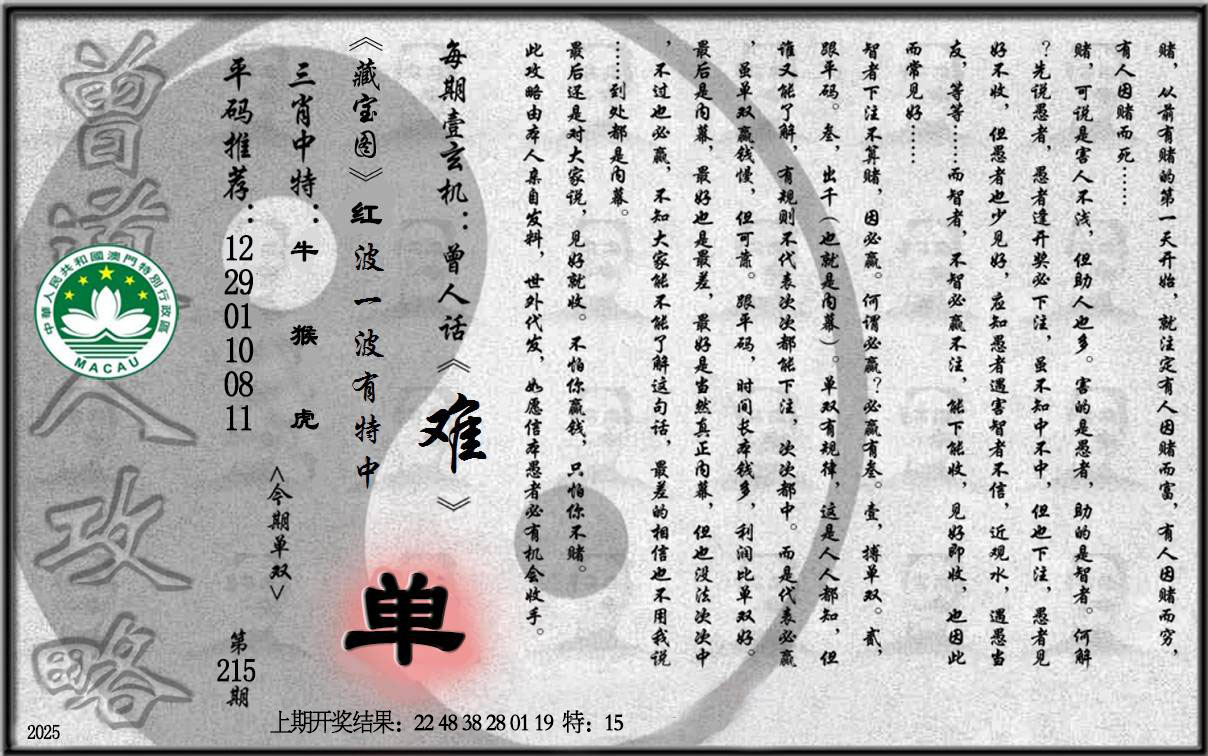 赌，从前有赌的第一天开始，就注定有人因赌而富，有人因赌而穷，
有人因赌而死……
赌，可说是害人不浅，但助人也多。害的是愚者，助的是智者。何解
？先说愚者，愚者逢开奖必下注，虽不知中不中，但也下注，愚者见
好不收，但愚者也少见好，应知愚者遇害智者不信，近观水，遇愚当
友，等等……而智者，不智必赢不注，能下能收，见好即收，也因此
而常见好……
智者下注不算赌，因必赢。何谓必赢？必赢有叁。壹，搏单双。贰，
跟平码。叁，出千（也就是内幕）。单双有规律，这是人人都知，但
谁又能了解，有规则不代表次次都能下注，次次都中。而是代表必赢
，虽单双赢钱慢，但可靠。跟平码，时间长本钱多，利润比单双好。
最后是内幕，最好也是最差，最好是当然真正内幕，但也没法次次中
，不过也必赢，不知大家能不能了解这句话，最差的相信也不用我说
……到处都是内幕。
最后还是对大家说，见好就收。不怕你赢钱，只怕你不赌。
此攻略由本人亲自发料，世外代发，如愿信本愚者必有机会收手。
每期壹玄机：曾人话《难》
《藏宝图》红波一波有特中
单
三肖中特：牛 猴 虎
<今期单双>
平码推荐：12 29 01 10 08 11
第215期
曾道人攻略
中華人民共和國澳門特別行政區
MACAU
上期开奖结果：22 48 38 28 01 19 特：15
2025